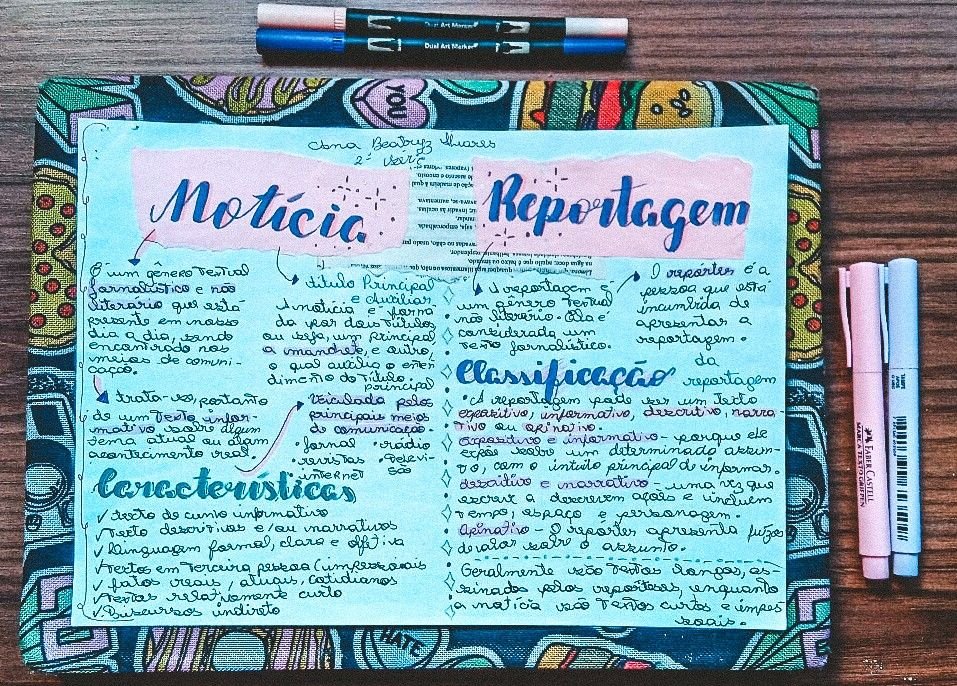 Dual Art Marker
Dual Art Marker
YOU
Ana Beatryz Soares
2ª série
Notícia
É um gênero Textual
jornalístico e não
literário que está
presente em nosso
dia a dia, sendo
encontrado nos
meios de comuni-
cação.
trata-se, portanto
de um Texto infor-
mativo sobre algum
tema atual ou algum
acontecimento real.
título Principal
e Auxiliar.
A notícia é forma
da por dois Títulos
ou seja, um principal
a manchete, e outro,
o qual auxilia o enten
dimento do Título principal
veiculada pelos
principais meios
de comunicação.
jornal • rádio
revistas • televi-
são
internet
Características
✓ texto de cunho informativo
✓ Texto descritivos e/ou narrativos
✓ linguagem formal, clara e objetiva
✓ Textos em Terceira pessoa (impessoais
✓ fatos reais, atuais, cotidianos
✓ Textos relativamente curto
✓ Discursos indireto
Reportagem
A reportagem é
um gênero Textual
não literário. Ela é
considerada um
Texto jornalístico.
O repórter é a
pessoa que está
incumbida de
apresentar a
reportagem.
Classificação
da
reportagem
• A reportagem pode ser um Texto
expositivo, informativo, descritivo, narra-
tivo ou opinativo.
expositivo e informativo - porque ele
expõe sobre um determinado assun-
to, com o intuito principal de informar.
descritivo e narrativo - uma vez que
escreve a descrevem ações e incluem
tempo, espaço e personagem.
Opinativo - O repórter apresenta juízos
de valor sobre o assunto.
Geralmente são Textos longos, as-
sinados pelos repórteres, enquanto
a notícia são Textos curtos e impes
soais.
HATE
FABER-CASTELL
MARCA TEXTO GRIFPEN